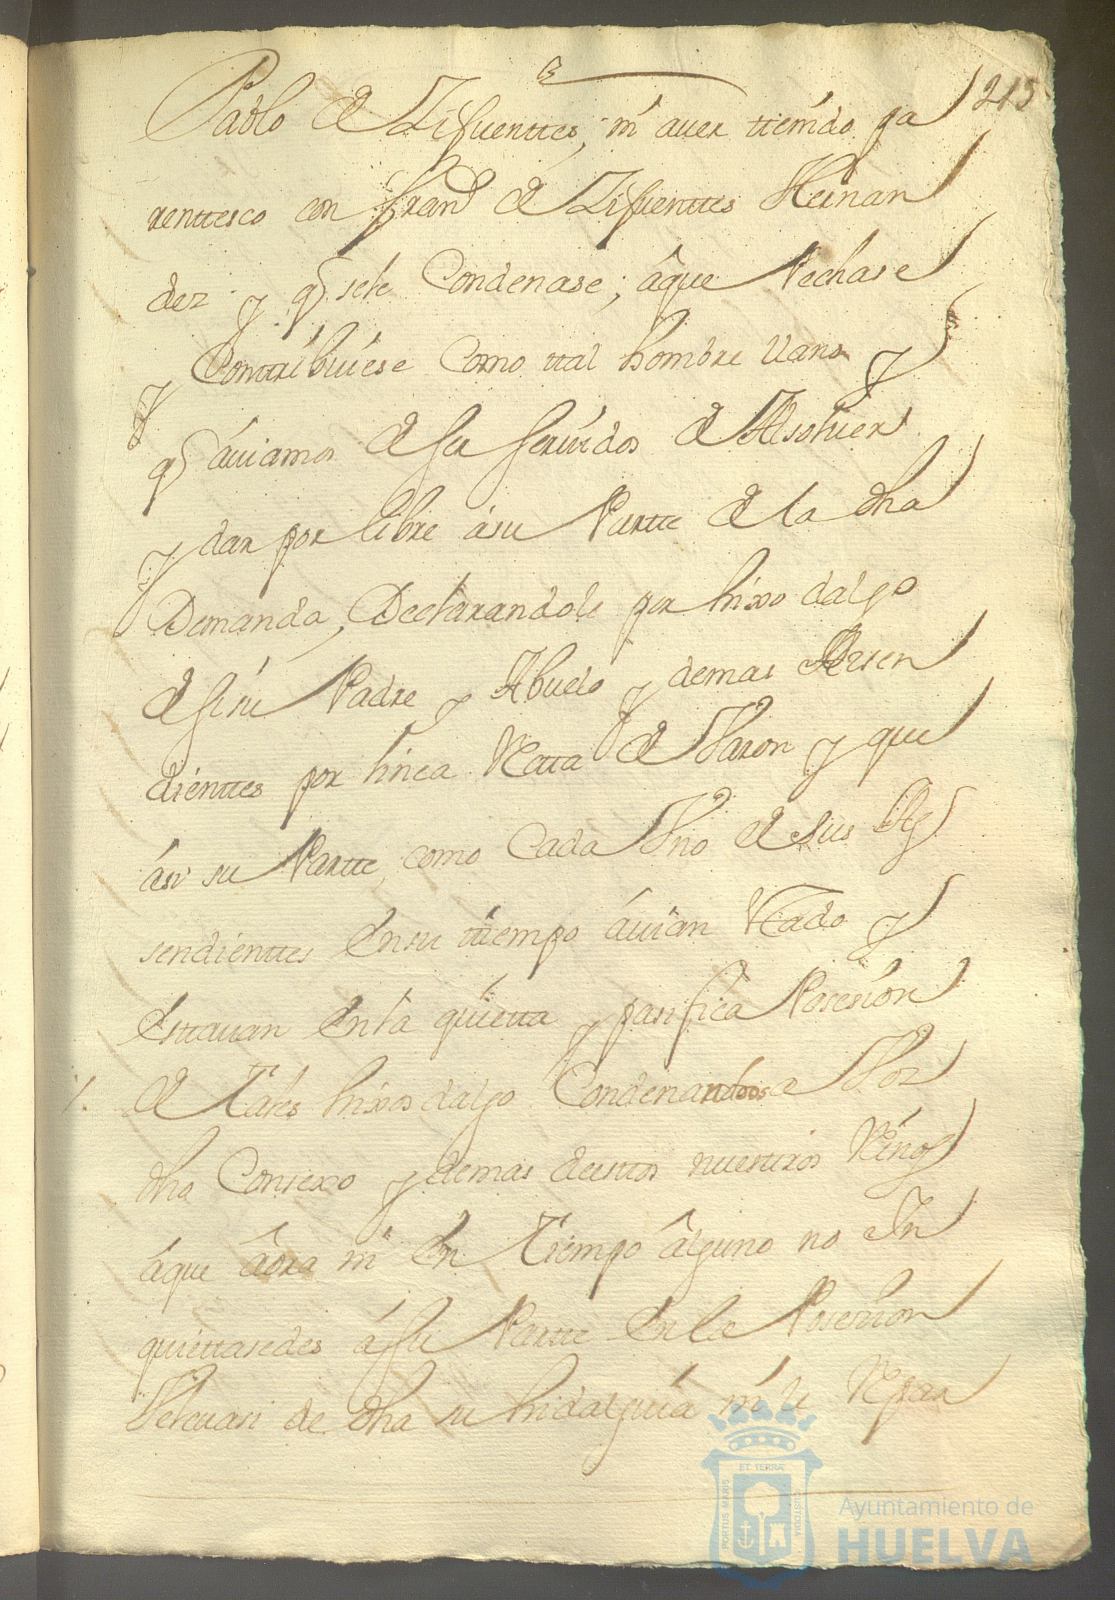 215
Pablo de Zifuenttes, ni aver ttenido pa
renttesco con Fran.co de Zifuenttes Hernan
dez y q se le Condenase, áque Pechase
y Conttribuiese Como ttal hombre llano y
q áuiamos de ser seruidos de Absoluer
y dar por libre ásu Partte de la dha
Demanda, Declarandole por hixo dalgo
de si su Padre y Abuelo y demas Assen
dienttes por linea Rectta de Varon y que
ási su Partte, como Cada Vno de sus As
sendienttes En su tiempo áuian Estado y
Esttauan En la quietta y pasifica Posesion
de Tales hixos dalgo Condenandosse a Voz
dho Consexo y demas de esttos nuestros Reinos
áque áora ni En Tiempo álguno no In
quiettasedes á su Partte En la Posesion
Velcuasi de dha su hidalguia ni le Repar
ET TERRA
PORTUS MARIS
CUSTODIA
Ayuntamiento de
HUELVA